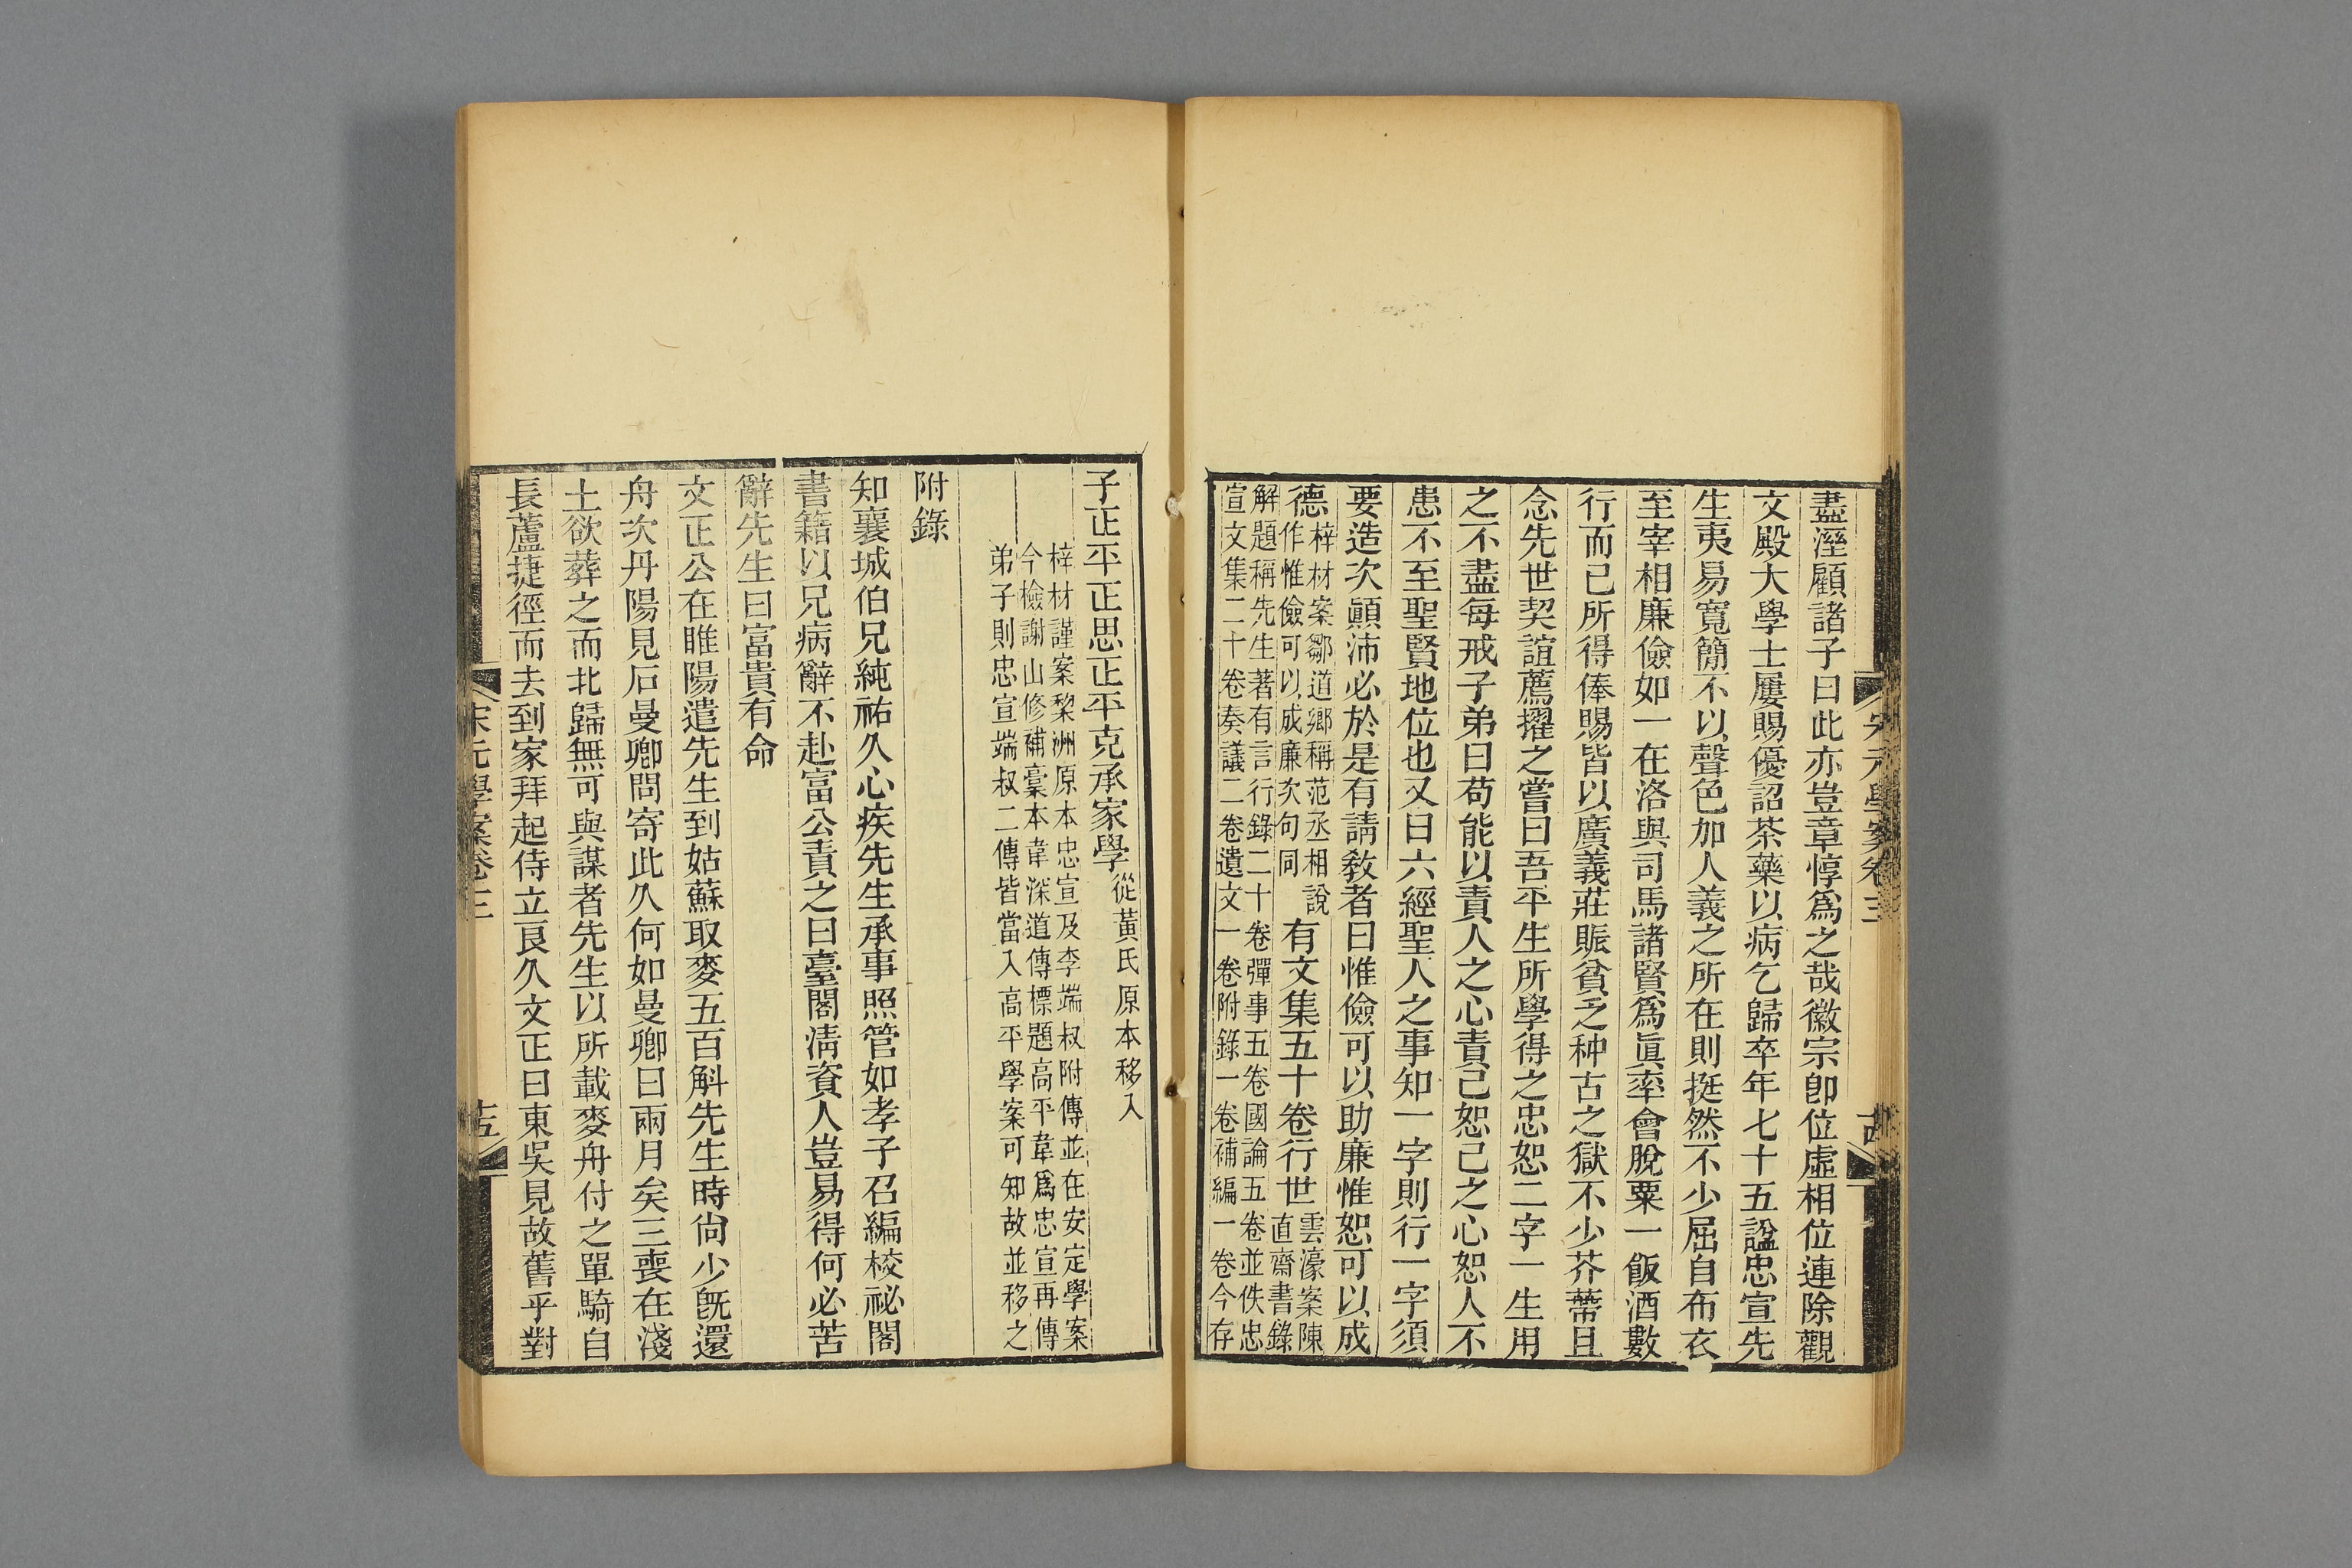 宋元學案卷三
盡溼顧諸子曰此亦豈章惇爲之哉徽宗卽位虛相位連除觀
文殿大學士屢賜優詔茶藥以病乞歸卒年七十五諡忠宣先
生夷易寬簡不以聲色加人義之所在則挺然不少屈自布衣
至宰相廉儉如一在洛與司馬諸賢爲眞率會脫粟一飯酒數
行而已所得俸賜皆以廣義莊賑貧乏种古之獄不少芥蔕且
念先世契誼薦擢之嘗曰吾平生所學得之忠恕二字一生用
之不盡每戒子弟曰苟能以責人之心責己恕己之心恕人不
患不至聖賢地位也又曰六經聖人之事知一字則行一字須
要造次顚沛必於是有請敎者曰惟儉可以助廉惟恕可以成
德梓材案鄒道鄉稱范丞相說作惟儉可以成廉次句同有文集五十卷行世雲濠案陳直齋書錄
解題稱先生著有言行錄二十卷彈事五卷國論五卷並佚忠
宣文集二十卷奏議二卷遺文一卷附錄一卷補編一卷今存
子正平正思正平克承家學從黃氏原本移入
梓材謹案棃洲原本忠宣及李端叔附傳並在安定學案
今檢謝山修補稾本韋深道傳標題高平韋爲忠宣再傳
弟子則忠宣端叔二傳皆當入高平學案可知故並移之
附錄
知襄城伯兄純祐久心疾先生承事照管如孝子召編校祕閣
書籍以兄病辭不赴富公責之曰臺閣淸資人豈易得何必苦
辭先生曰富貴有命
文正公在睢陽遣先生到姑蘇取麥五百斛先生時尙少旣還
舟次丹陽見石曼卿問寄此久何如曼卿曰兩月矣三喪在淺
土欲葬之而北歸無可與謀者先生以所載麥舟付之單騎自
長蘆捷徑而去到家拜起侍立良久文正曰東吳見故舊乎對
宋元學案卷三
十五